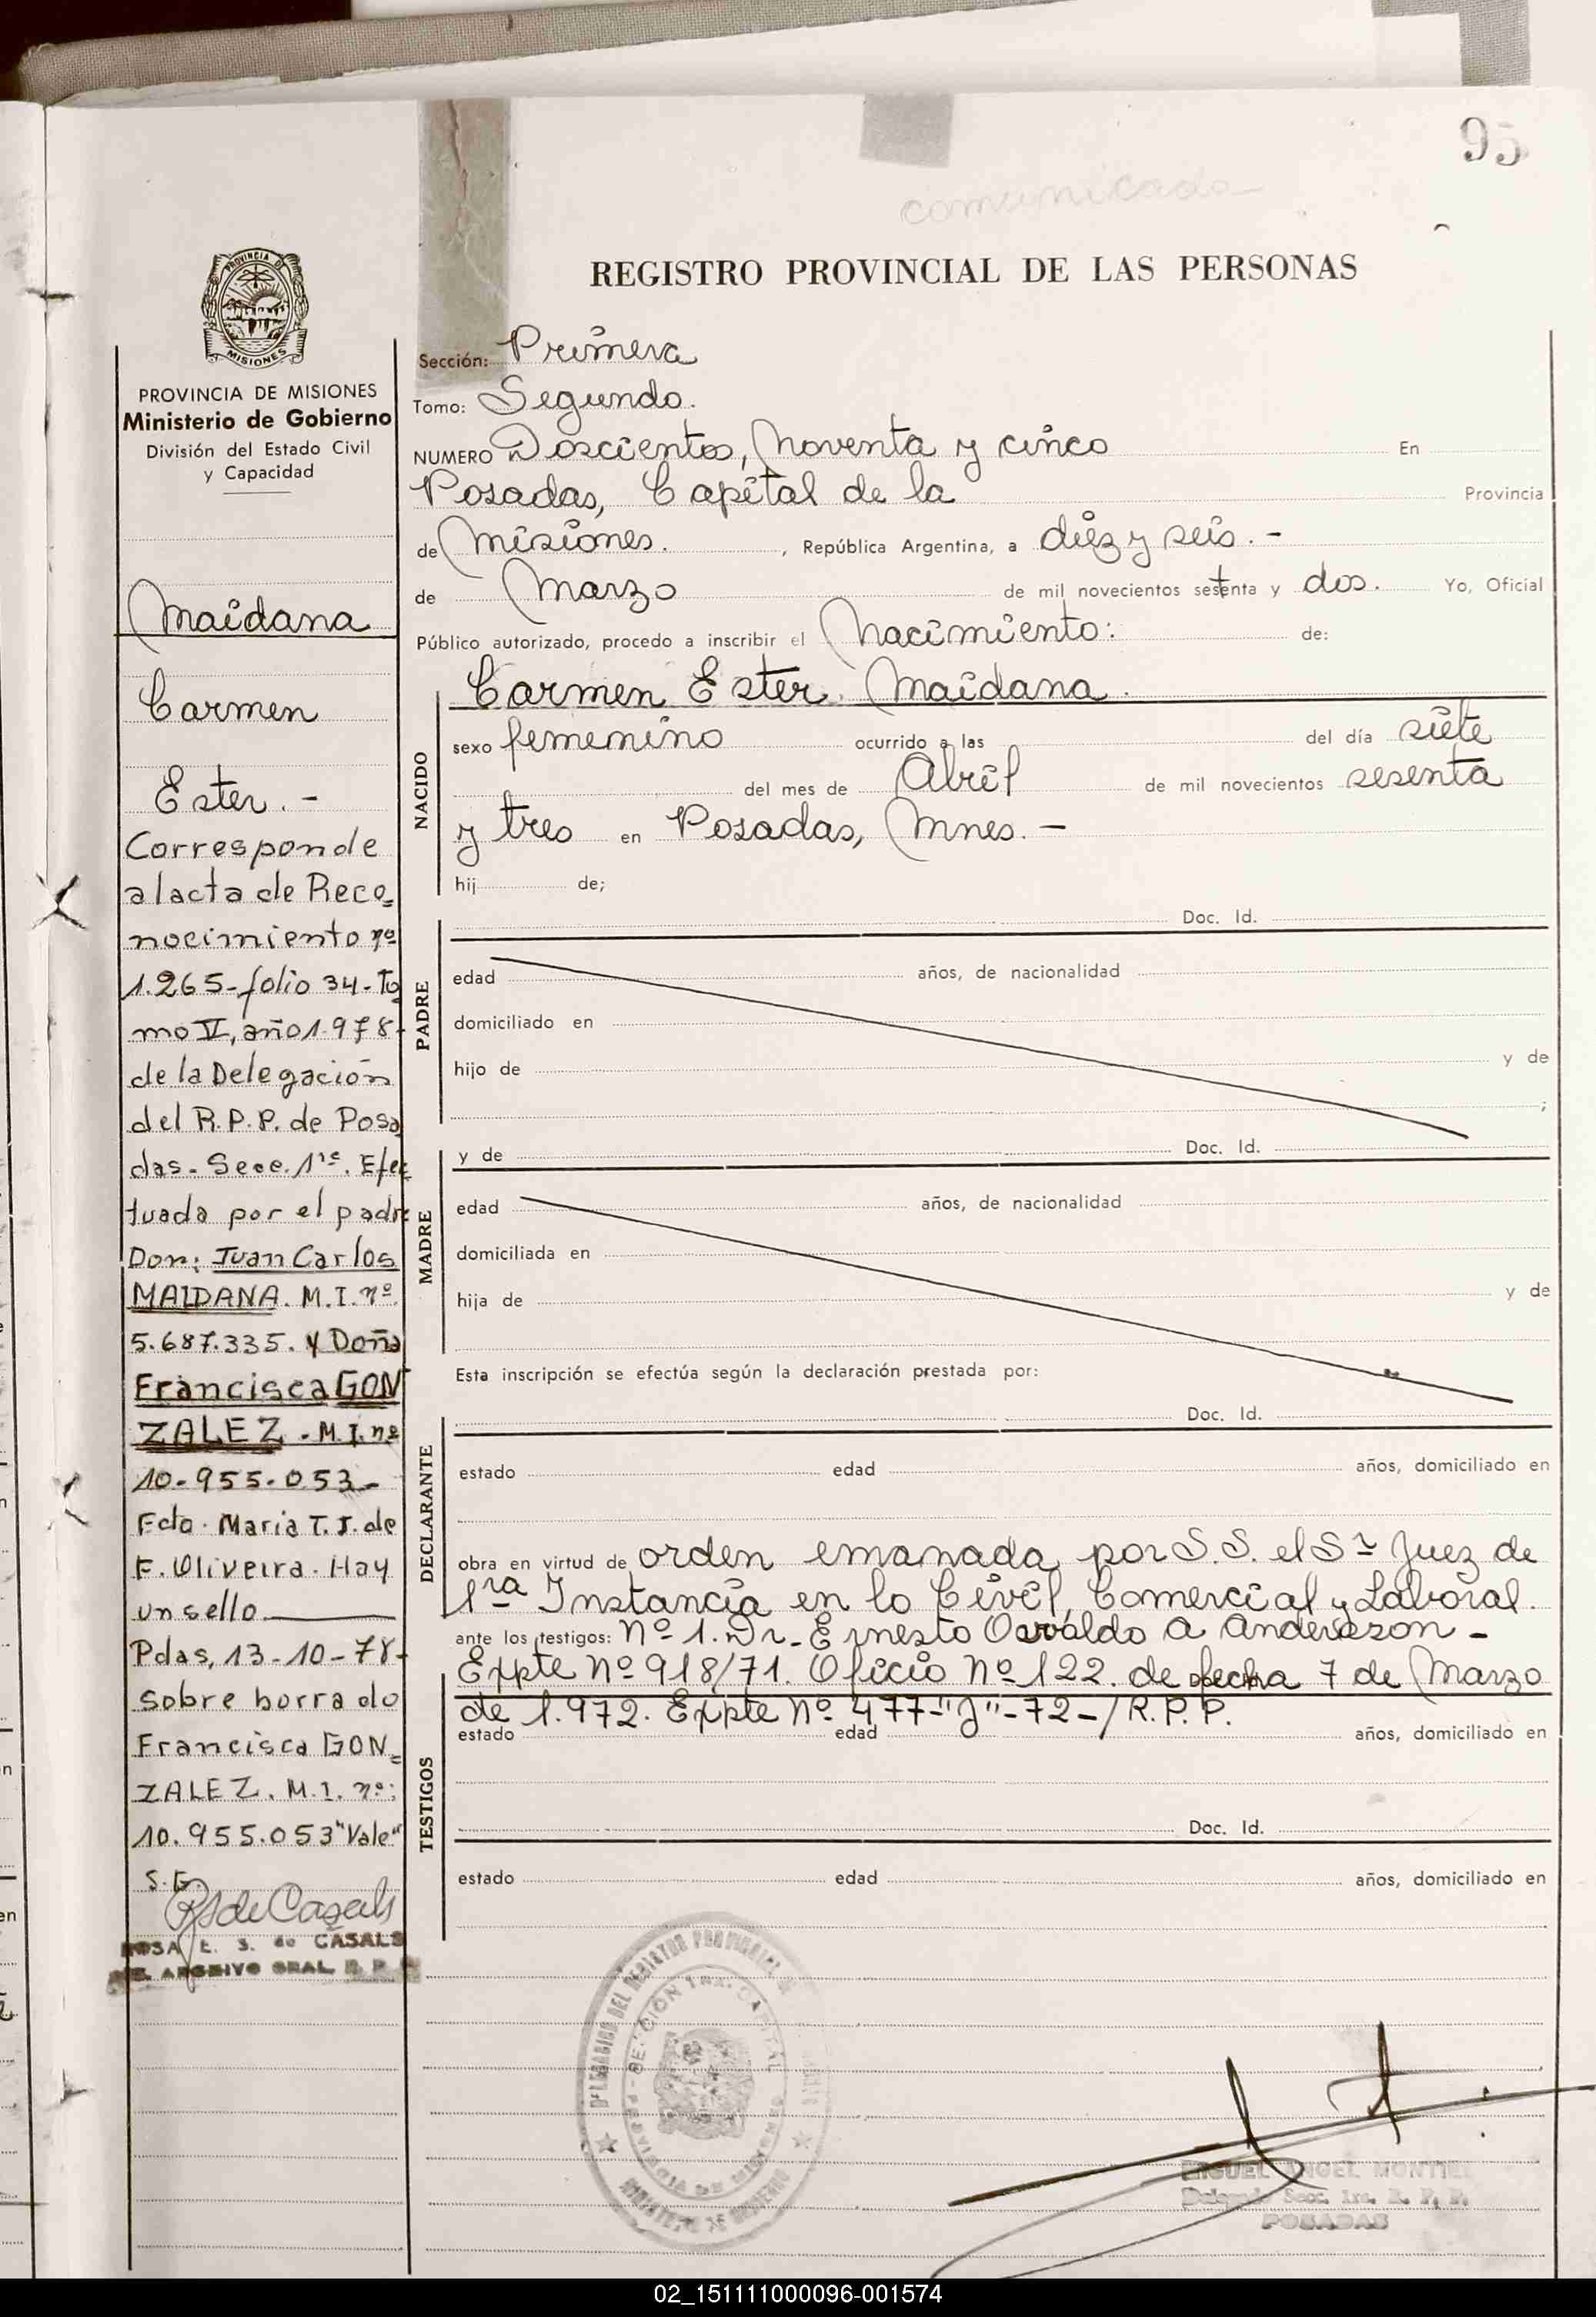 95
comunicada
REGISTRO PROVINCIAL DE LAS PERSONAS
PROVINCIA DE
MISIONES
PROVINCIA DE MISIONES
Ministerio de Gobierno
División del Estado Civil
y Capacidad
Maidana
Carmen
Ester. -
Corresponde
al acta de Reco=
nocimiento nº
1.265-folio 34-To
mo II, año 1.978-
de la Delegación
del R.P.P. de Posa
das-Secc. 1ra. Efec
tuada por el padre
Don: Juan Carlos
MAIDANA. M.I. nº
5.687.335. y Doña
Francisca GON
ZALEZ. M.I. nº
10-955-053-
Fdo. Maria T. J. de
F. Oliveira. Hay
un sello.
Pdas, 13-10-78-
Sobre borrado
Francisca GON=
ZALEZ. M.I. nº:
10.955.053 "Vale"
S.G.
RSdeCasals
ROSA E. S. de CASALS
ARCHIVO GRAL. R. P.
Sección: Primera
Tomo: Segundo.
NUMERO Doscientos, Noventa y cinco En
Posadas, Capital de la Provincia
de Misiones. , República Argentina, a diez y seis. -
de Marzo de mil novecientos setenta y dos. Yo, Oficial
Público autorizado, procedo a inscribir el Nacimiento: de:
NACIDO
Carmen Ester Maidana.
sexo femenino ocurrido a las del día siete
del mes de Abril de mil novecientos sesenta
y tres en Posadas, Mnes. -
hij de;
Doc. Id.
PADRE
edad años, de nacionalidad
domiciliado en
hijo de y de
;
y de Doc. Id.
MADRE
edad años, de nacionalidad
domiciliada en
hija de y de
Esta inscripción se efectúa según la declaración prestada por:
Doc. Id.
DECLARANTE
estado edad años, domiciliado en
obra en virtud de orden emanada por S.S. el Sr Juez de
1ra Instancia en lo Civil, Comercial y Laboral.
ante los testigos: Nº 1. Dr. Ernesto Osvaldo A Anderson -
Expte Nº 918/71. Oficio Nº 122. de fecha 7 de Marzo
de 1.972. Expte Nº 477-"J"-72-/R.P.P.
TESTIGOS
estado edad años, domiciliado en
Doc. Id.
estado edad años, domiciliado en
DELEGACION DEL REGISTRO PROVINCIAL DE
SECCION 1ra. CAPITAL
PROVINCIA DE MISIONES
MINISTERIO DE GOBIERNO
MIGUEL ANGEL MONTIEL
Delegado Secc. 1ra. R. P. P.
POSADAS
02_151111000096-001574